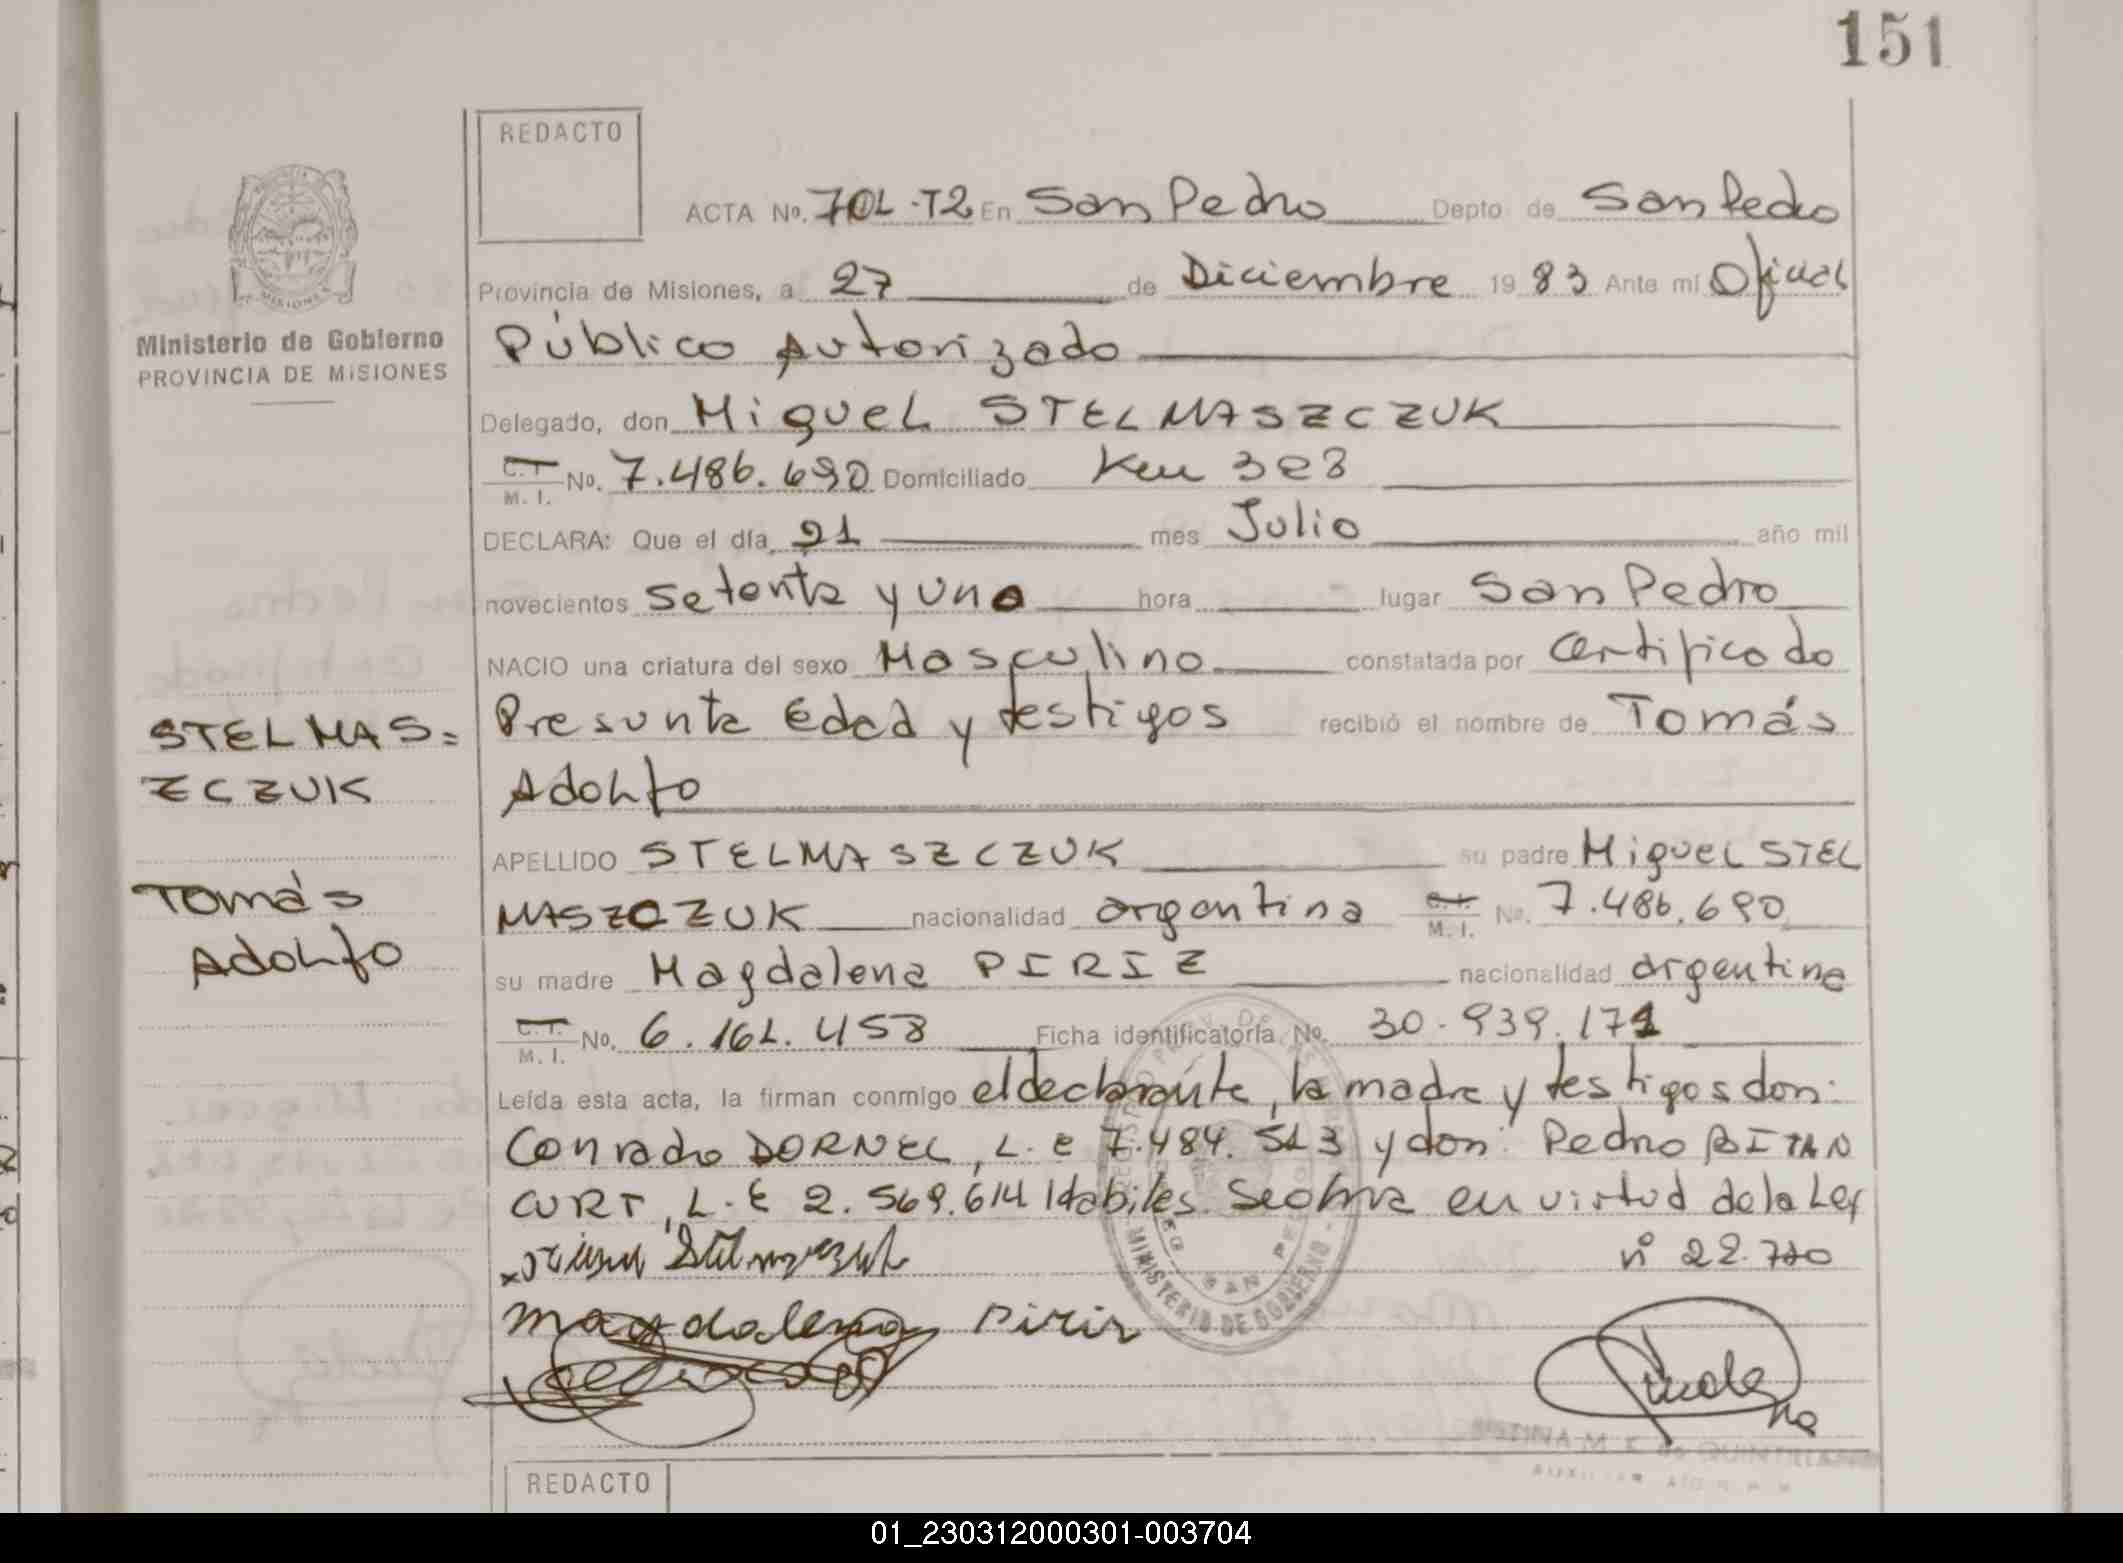 151
REDACTO
ACTA No. 701-T2 En San Pedro Depto de San Pedro
Provincia de Misiones, a 27 de Diciembre 1983 Ante mí Oficial
Ministerio de Gobierno
PROVINCIA DE MISIONES
Público Autorizado
Delegado, don Miguel STELMASZCZUK
C.I. M. I. No. 7.486.690 Domiciliado Km 328
DECLARA: Que el día 21 mes Julio año mil
novecientos setenta y uno hora lugar San Pedro
NACIO una criatura del sexo Masculino constatada por Certificado
Presunta Edad y testigos recibió el nombre de Tomás
Adolfo
STELMAS=
ZCZUK
Tomás
Adolfo
APELLIDO STELMASZCZUK su padre Miguel STEL
MASZCZUK nacionalidad argentina C.I. M. I. No. 7.486.690
su madre Magdalena PIRIZ nacionalidad argentina
C.I. M. I. No. 6.161.458 Ficha identificatoria No. 30.939.171
Leída esta acta, la firman conmigo el declarante, la madre y testigos don:
Conrado DORNEL, L.E 7.484.513 y don: Pedro BITAN
CURT, L.E 2.569.614 Habiles. Se obra en virtud de la Ley
nº 22.770
Magdalena Piriz
MINISTERIO DE GOBIERNO
SAN PEDRO
REDACTO
01_230312000301-003704